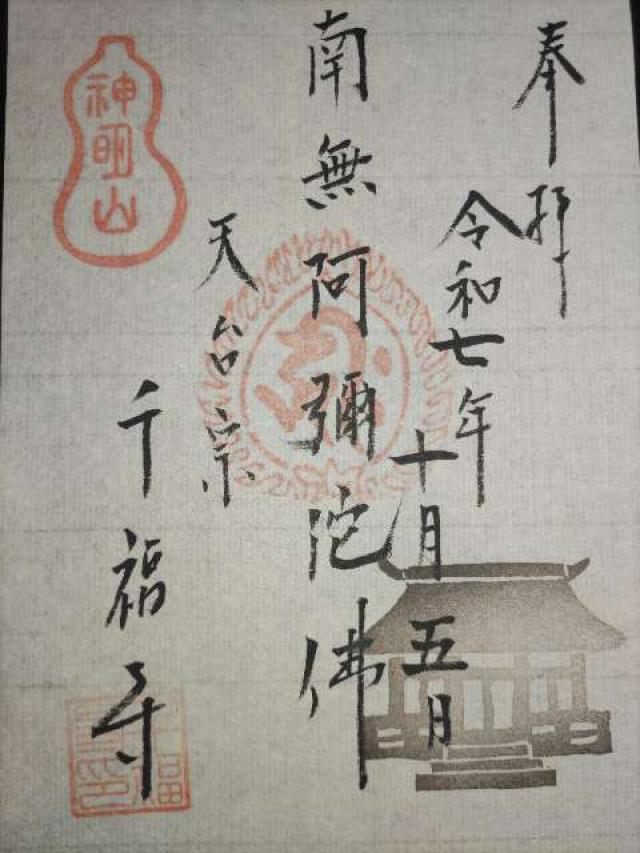 奉拝
令和七年
十月五日
南無阿彌陀佛
天台宗
千福寺
神明山